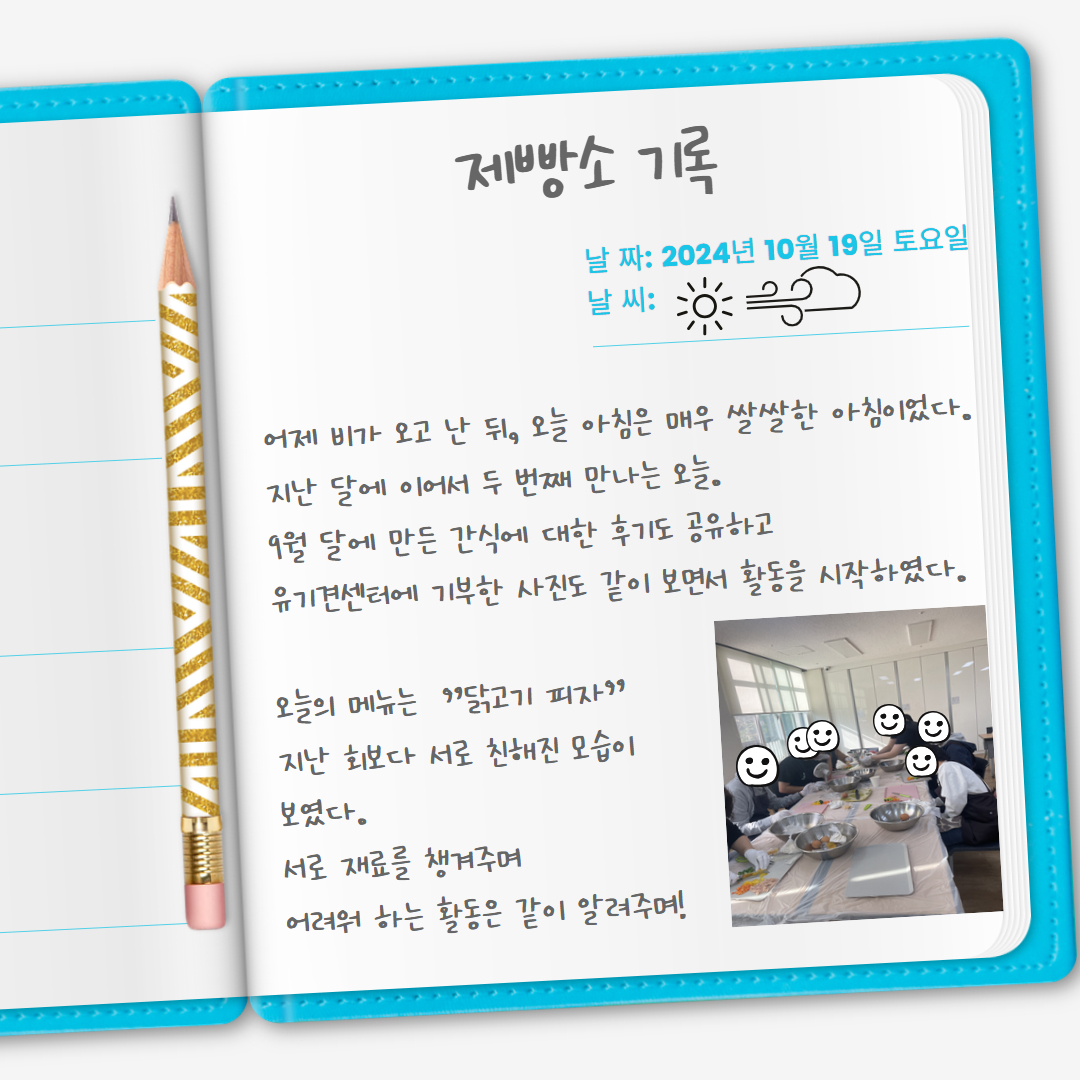 제빵소 기록
날 짜: 2024년 10월 19일 토요일
날 씨:
어제 비가 오고 난 뒤, 오늘 아침은 매우 쌀쌀한 아침이었다.
지난 달에 이어서 두 번째 만나는 오늘.
9월 달에 만든 간식에 대한 후기도 공유하고
유기견센터에 기부한 사진도 같이 보면서 활동을 시작하였다.
오늘의 메뉴는 "닭고기 피자"
지난 회보다 서로 친해진 모습이
보였다.
서로 재료를 챙겨주며
어려워 하는 활동은 같이 알려주며!